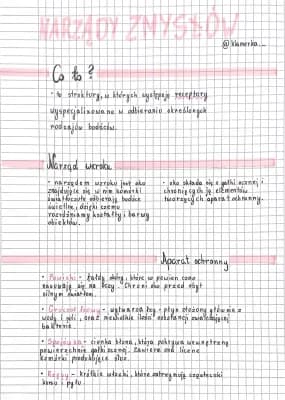 NARZĄDY ZMYSŁÓW
@klamorka__
Co to?
• to struktury, w których występują receptory
wyspecjalizowane w odbieraniu określonych
rodzajów bodźców.
Narząd wzroku
• narządem wzroku jest oko
znajdujące się w nim komórki
światłoczułe odbierają bodźce
świetlne, dzięki czemu
rozróżniamy kształty i barwy
obiektów.
• oko składa się z gałki ocznej i
chroniących ją elementów
tworzących aparat ochronny.
Aparat ochronny
• Powieki - fałdy skóry, które w pewnym czasie
nasuwają się na oczy. Chronią oko przed zbyt
silnym światłem.
• Gruczoł łzowy - wytwarza łzy - płyn złożony głównie z
wody i soli, oraz niewielkie ilości substancji zwalczającej
bakterie.
• Spojówka - cienka błona, która pokrywa wewnętrzną
powierzchnię gałki ocznej. Zawiera ona liczne
komórki produkujące śluz.
• Rzęsy - krótkie włoski, które zatrzymują cząsteczki
kurzu i pyłu.